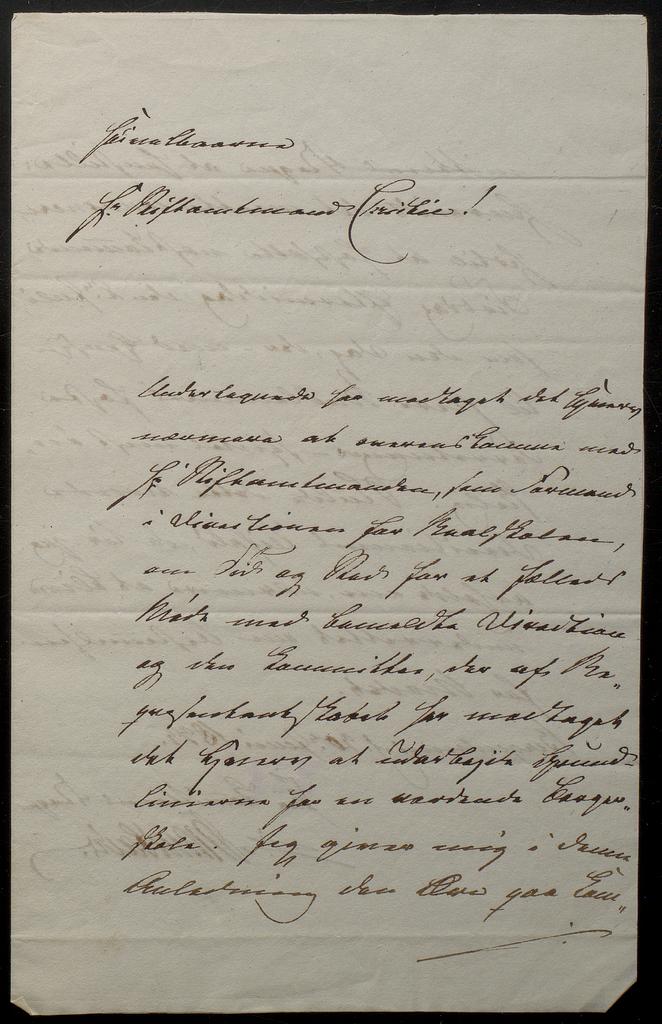 Høivelbaarne
Hr. Stiftamtmand Christie!
Undertegnede har modtaget det Hverv
nærmere at overenskomme med
Hr. Stiftamtmanden, som Formand
i Directionen for Realskolen,
om Tid og Sted for et fælleds
Møde med bemeldte Direction
og den Committee, der af Re„
præsentantskabet har modtaget
det Hverv at udarbeide Grund-
linierne for en vordende Borger„
skole. Jeg giver mig i denne
Anledning den Ære paa Com„